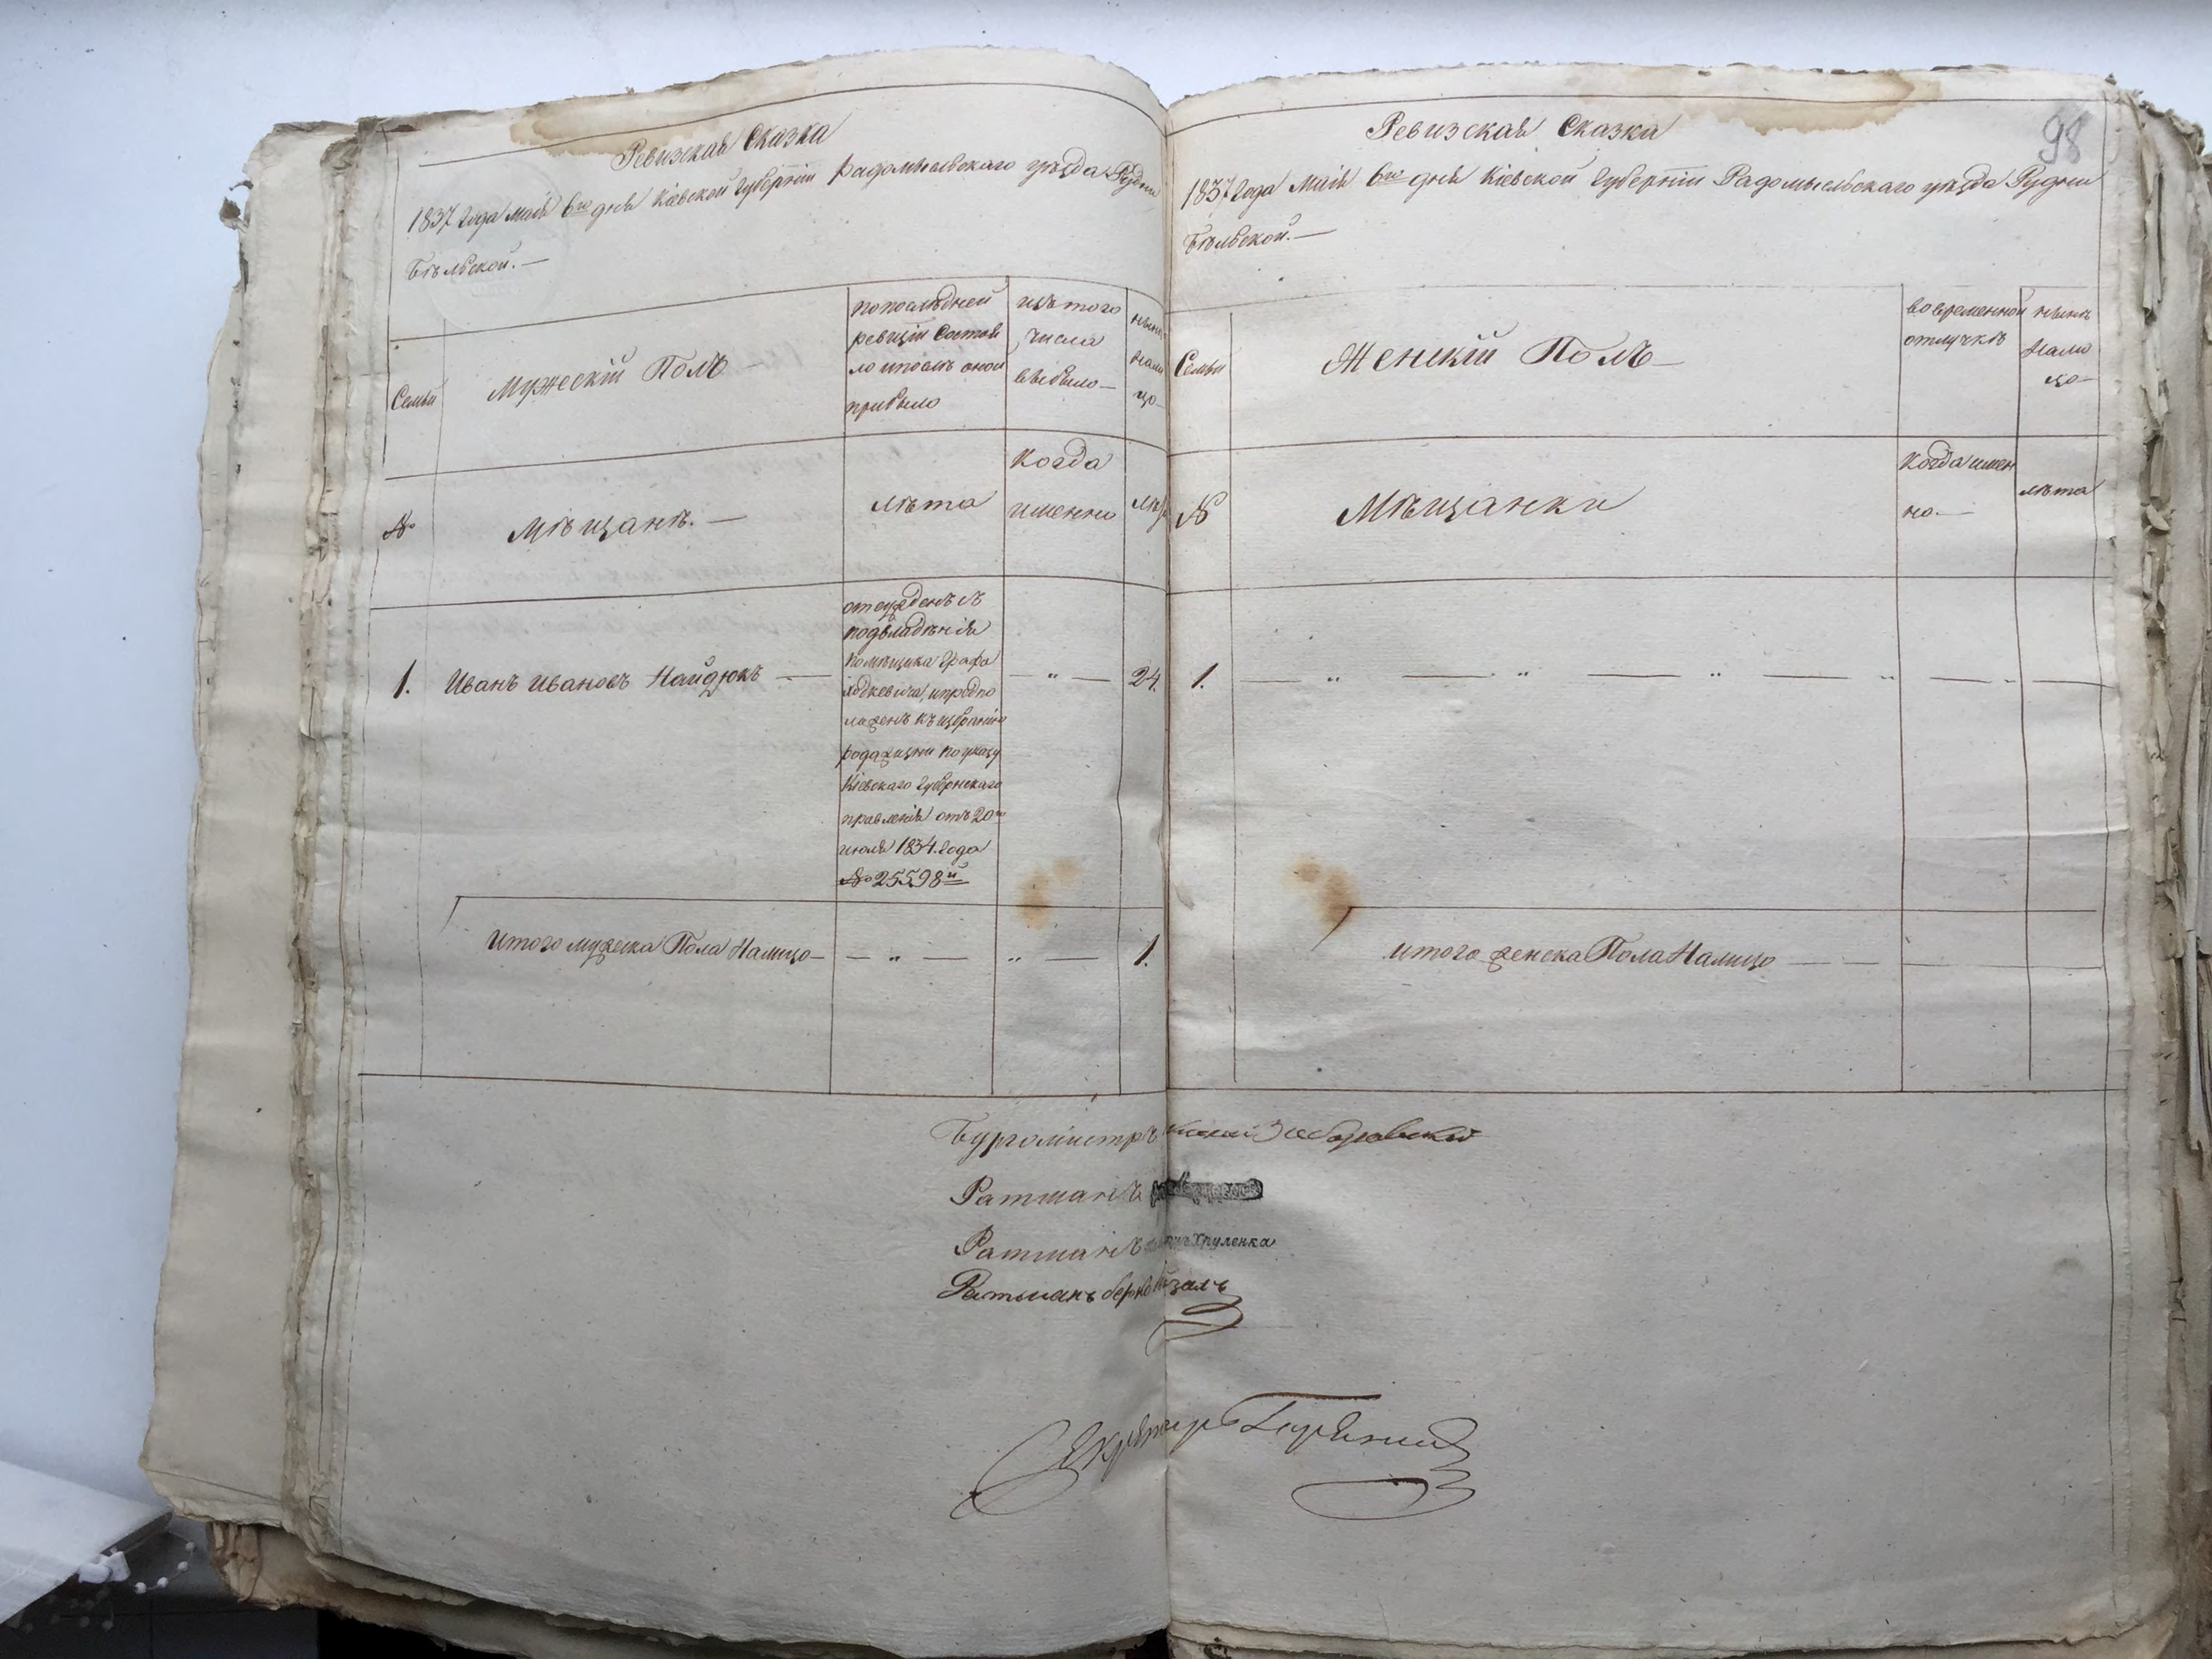 Ревизская Сказка
1837 года маія 6го дня Кіевской Губерніи радомысльскаго уѣзда Рудни
Бѣльской. —
Семьи
Мужескій Полъ —
по послѣдней
ревизіи Состоя
ло и послѣ оной
прибыло
изъ того
числа
выбыло —
нынѣ
нали
цо —
№
Мѣщанѣ. —
лѣта
Когда
именно
лѣта
1. Иванъ Ивановъ Найдюкъ — — " — 24.
отсужденъ съ
подвладѣнія
помѣщика Графа
Ходкевича, и предпо
ложенъ къ избранію
рода жизни по указу
Кіевскаго Губернскаго
правленія отъ 20го
июля 1834. года
№ 25598й
Итого мужеска Пола Налицо — — " — " — 1.
98
Ревизская Сказка
1837 года Маія 6го дня Кіевской Губерніи Радомысльскаго уѣзда Рудни
Бѣльской. —
Семьи
Женскій Полъ —
во временной
отлучкѣ
нынѣ
Нали
цо —
№
Мѣщанки
Когда имен
но. —
лѣта
1. — " — " — " — " — " —
итого женска Пола Налицо — —
Бургомистръ
Ратманъ
Ратманъ Хруленка
Ратманъ Берко
Секретарь